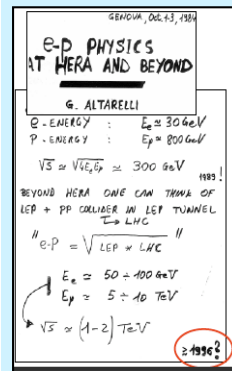 GENOVA, Oct. 1-3, 1984
e-p PHYSICS
AT HERA AND BEYOND
G. ALTARELLI
e-ENERGY : Ee ≃ 30 GeV
P-ENERGY : Ep ≃ 800 GeV
√s ≃ √4EeEp ≃ 300 GeV
1989!
BEYOND HERA ONE CAN THINK OF
LEP + PP COLLIDER IN LEP TUNNEL
↳ LHC
"e-p = √LEP * LHC"
Ee ≃ 50 ÷ 100 GeV
Ep ≃ 5 ÷ 10 TeV
√s ≃ (1-2) TeV
≥1996?